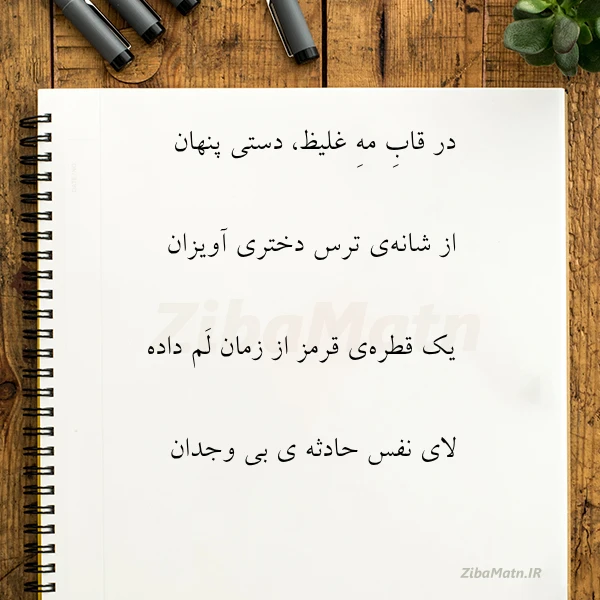 در قابِ مهِ غلیظ، دستی پنهان
از شانه‌ی ترس دختری آویزان
ZibaMatn
یک قطره‌ی قرمز از زمان لَم داده
لای نفس حادثه ی بی وجدان
ZibaMatn.IR